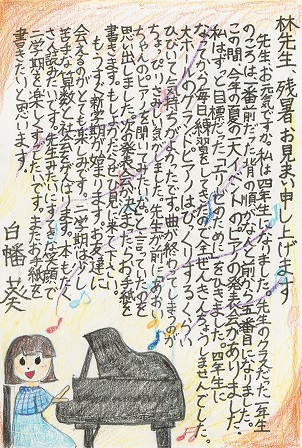 林先生、残暑お見まい申し上げます
先生、お元気ですか。私は四年生になりました。先生のクラスだった一年生
のころは、一番前だった背の順が、なんと前から五番目になりました。
この間、今年の夏の大イベントのピアノの発表会がありました。
私はずっと目標だった「エリーゼのために」をひきました。四年生に
なってから毎日練習をしていたので全ぜんきんちょうしませんでした。
大ホールのグランドピアノはびっくりするくらい
ひびいて気持ちがよかったです。曲が終わってしまうのが
ちょっぴりさみしい気がしました。先生が前に「あおい
ちゃんのピアノを聞いてみたいな。」と言っていたのを
思い出しました。次の発表会が決まったらお手紙を
書きます。もしよかったらぜひ見に来て下さい。
もうすぐ新学期が始まります。お友達に
会えるのがとても楽しみです。二学期は少し
苦手な算数と社会をがんばります。本もたく
さん読みたいです。先生みたいにすてきな笑顔で
二学期を楽しくすごしたいです。またお手紙を
書きたいと思います。
白幡 葵